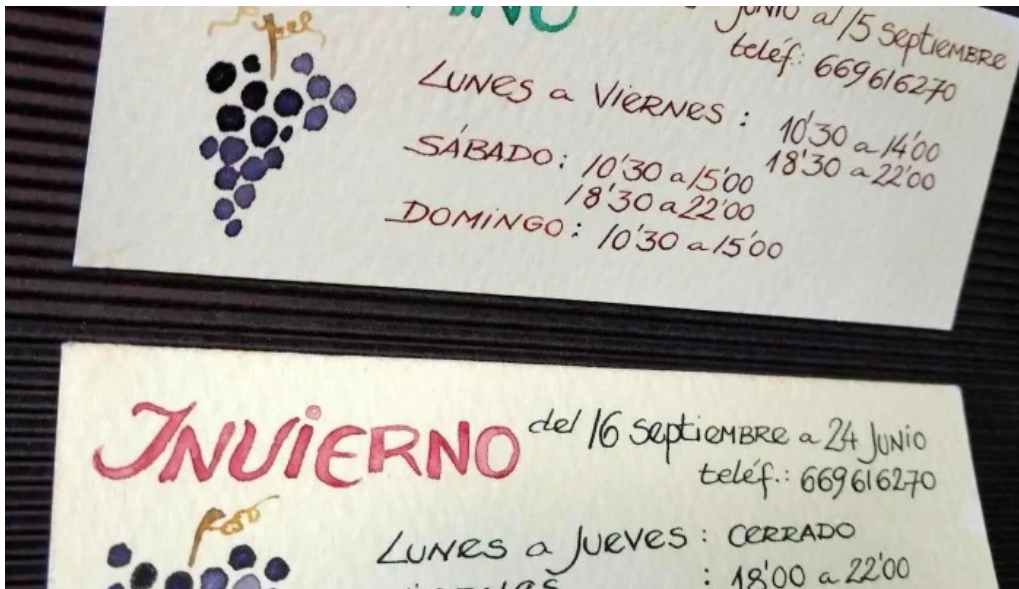 JUNIO al 15 septiembre
teléf: 669616270
LUNES a VIERNES : 10'30 a 14'00
18'30 a 22'00
SÁBADO: 10'30 a 15'00
18'30 a 22'00
DOMINGO: 10'30 a 15'00
INVIERNO del 16 septiembre a 24 JUNIO
teléf.: 669616270
LUNES a JUEVES : CERRADO
: 18'00 a 22'00